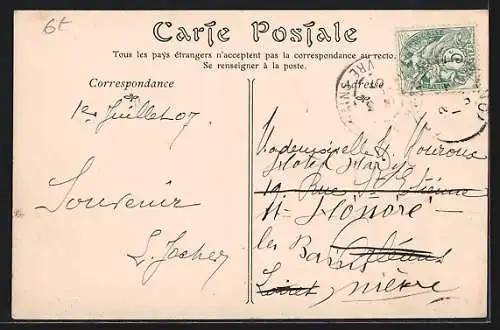 6t
Carte Postale
Tous les pays étrangers n'acceptent pas la correspondance au recto.
Se renseigner à la poste.
Correspondance
Adresse
1er Juillet 07
Souvenir
Mademoiselle Mouroux
19 Rue St Etienne
St Honoré
les Bains Orléans
Loiret nièvre